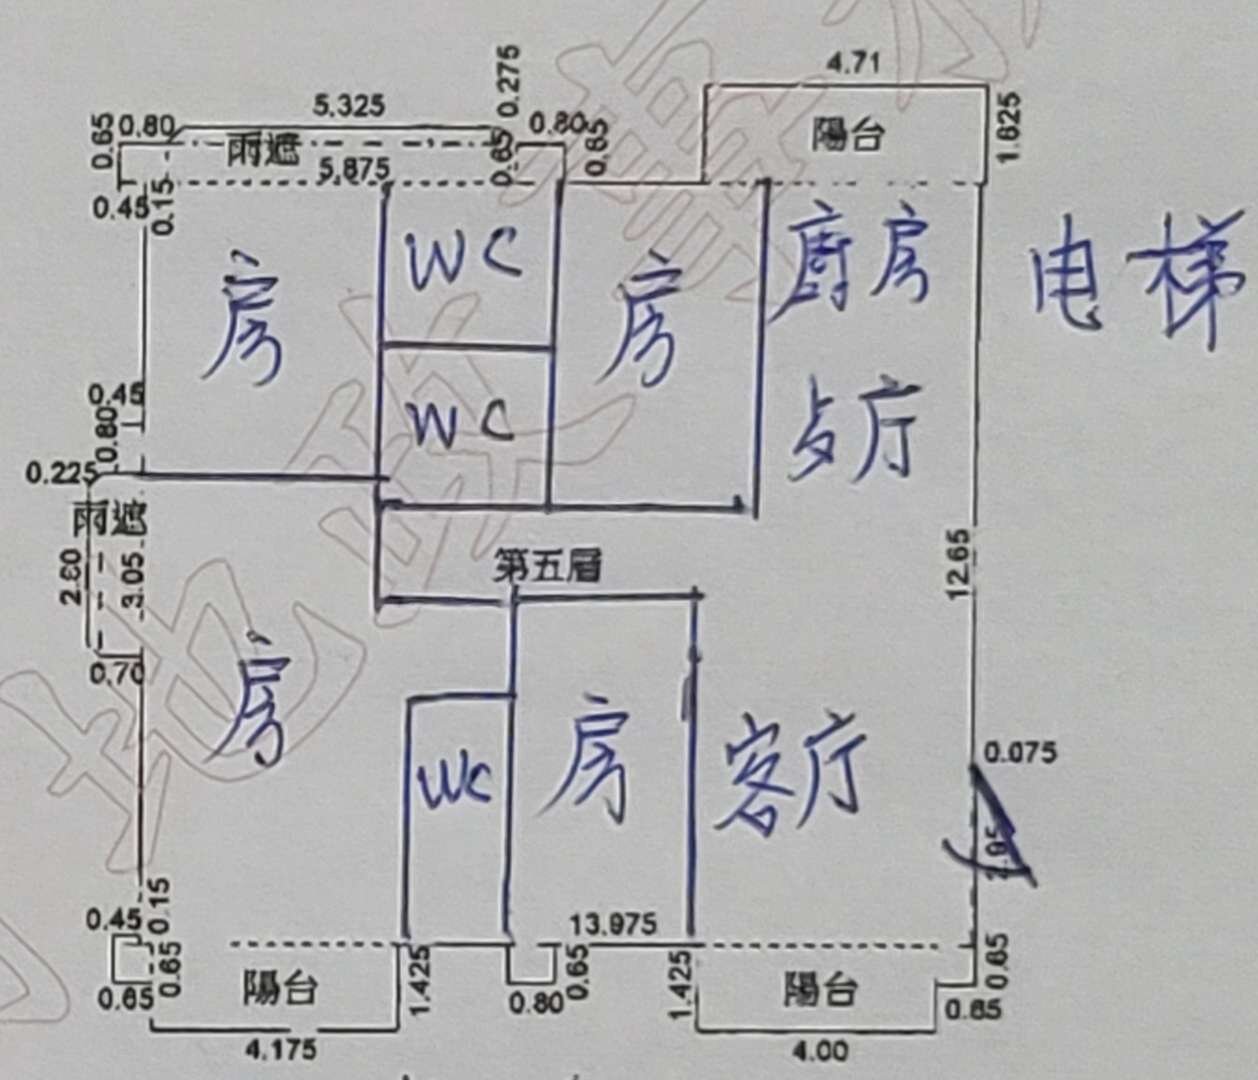 4.71
0.275
5.325
0.65
0.80
雨遮
0.65
0.80
0.65
陽台
1.625
5.875
0.45
0.15
房
WC
房
廚房
电梯
0.45
0.80
WC
厅
0.225
雨遮
第五層
2.60
3.05
12.65
0.70
房
房
WC
客厅
0.075
0.45
0.15
13.975
0.65
0.65
陽台
1.425
0.80
0.65
1.425
陽台
0.65
0.85
4.175
4.00